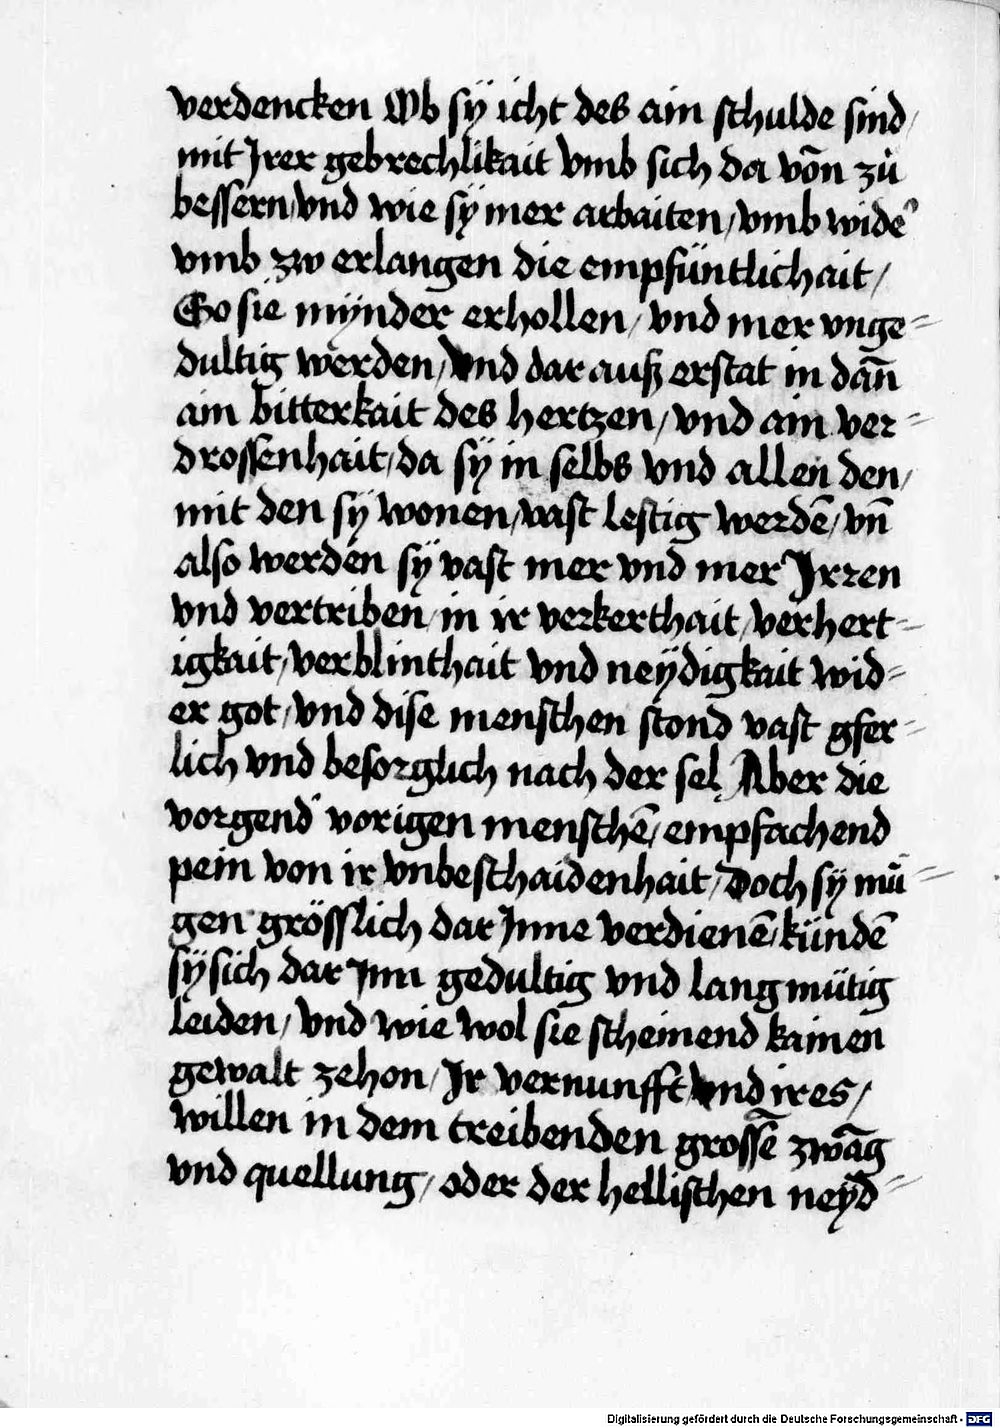 verdencken Ob sÿ icht des ain schulde sind/
mit Jrer gebrechlikait vmb sich da vōn zů
bessern/vnd wie sÿ mer arbaiten/vmb wide᾽
vmb zw erlangen die empfüntlichait/
So sie mÿnder erhollen/ vnd mer vnge=
dultig werden/vnd dar auß erstat in dan̄
ain bitterkait des hertzen/vnd ain ver=
drossenhait/da sÿ in selbs vnd allen den/
mit den sÿ wonen/vast lestig werdē/vn̄
also werden sÿ vast mer vnd mer Jrren
vnd vertriben/in ir verkerthait/verhert=
igkait/verblinthait vnd neÿdigkait wid=
er got/vnd dise menschen stond vast gfer=
lich vnd besorglich nach der sel Aber die
vorgend᾽ vorigen menschē/empfachend
pein von ir vnbeschaidenhait/Doch sÿ mü=
gen grösslich dar Jnne verdienē/kündē
sÿ sich dar Jnn gedultig vnd langmütig
leiden/vnd wie wol sie scheinend kainen
gewalt zehon/Jr vernunfft vnd ires/
willen in dem treibenden grossē zwāg
vnd quellung/oder der hellischen neÿd=
Digitalisierung gefördert durch die Deutsche Forschungsgemeinschaft - DFG